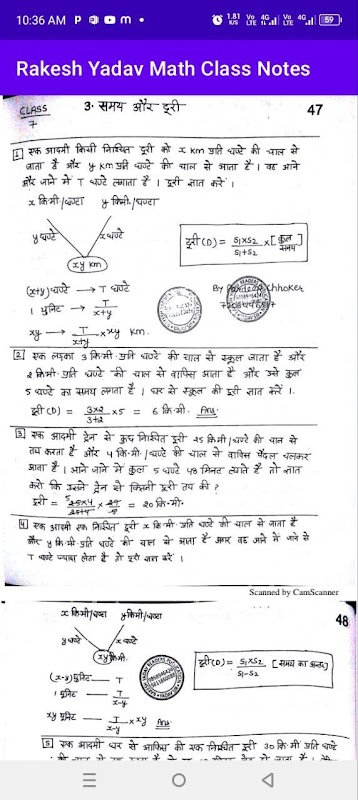 10:36 AM
1.81 K/s Vo LTE 4G Vo LTE 4G 59
Rakesh Yadav Math Class Notes
CLASS 7
3. समय और दूरी
47
1 एक आदमी किसी निश्चित दूरी को x km प्रति घण्टे की चाल से
जाता है और y km प्रति घण्टे की चाल से आता है । वह आने
और जाने में T घण्टे लगाता है । दूरी ज्ञात करें ।
x किमी/घण्टा y किमी/घण्टा
y घण्टे x घण्टे
xy km
दूरी (D) = S₁xS₂ / S₁+S₂ x [कुल समय]
(x+y) घण्टे → T घण्टे
1 युनिट → T / x+y
xy → T / x+y x xy km.
By Pardeep Chhoker
2 एक लड़का 3 कि॰मी॰ प्रति घण्टे की चाल से स्कूल जाता है और
2 कि॰मी॰ प्रति घण्टे की चाल से वापिस आता है और उसे कुल
5 घण्टे का समय लगता है । घर से स्कूल की दूरी ज्ञात करें ।
दूरी (D) = 3x2 / 3+2 x 5 = 6 कि॰मी॰ Ans.
3 एक आदमी ट्रेन से कुछ निश्चित दूरी 25 किमी/घण्टे की चाल से
तय करता है और 4 कि॰मी॰/घण्टे की चाल से वापिस पैदल चलकर
आता है । आने जाने में कुल 5 घण्टे 48 मिनट लगते हैं तो ज्ञात
करो कि उसने ट्रेन से कितनी दूरी तय की ?
दूरी = 25x4 / 25+4 x 29 / 5 = 20 कि॰मी॰
4 एक आदमी एक निश्चित दूरी x कि॰मी॰ प्रति घण्टे की चाल से जाता है
और y कि॰मी॰ प्रति घण्टे की चाल से आता है अगर वह आने में जाने से
T घण्टे ज्यादा लेता है तो दूरी ज्ञात करें ।
Scanned by CamScanner
x किमी/घण्टा y किमी/घण्टा
48
y घण्टे x घण्टे
xy किमी.
दूरी (D) = S₁xS₂ / S₁-S₂ [समय का अन्तर]
(x-y) युनिट — T
1 युनिट — T / x-y
xy युनिट — T / x-y x xy Ans
5 एक आदमी घर से आफिस की एक निश्चित दूरी 30 कि॰मी॰ प्रति घण्टे